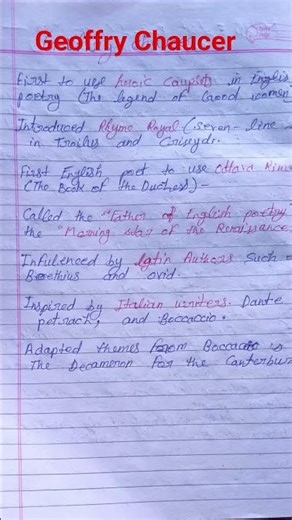 Geoffry Chaucer
First to use heroic couplets in English
poetry (The legend of Good women
Introduced Rhyme Royal (seven-line
in Troilus and Criseyde.
First English poet to use Ottava Rima
(The Book of the Duchess)-
Called the "Father of English poetry
the "Morning star of the Renaissance
Influenced by latin Authors such
Boethius and ovid.
Inspired by Italian writers. Dante
petrach, and Boccaccio.
Adapted themes from Boccaccio's
The Decameron for the Canterbury